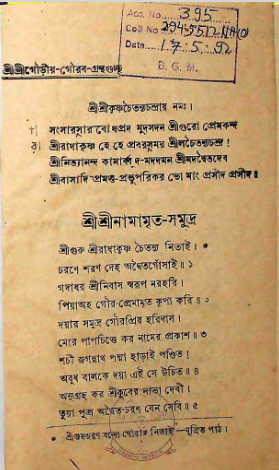 Acc. No. 395
Call No. 294.5512
Date 17.5.92
B. G. M.
শ্রীশ্রীগৌড়ীয়-গৌরব-গ্রন্থগুচ্ছ
শ্রীশ্রীকৃষ্ণচৈতন্যচন্দ্রায় নমঃ।
সংসারসার বোধপ্রদ মুদসদন শ্রীগুরো প্রেমকন্দ
শ্রীরাধাকৃষ্ণ হে হে প্রেবরসুমর শ্রীলচৈতন্যচন্দ্র!
শ্রীনিত্যানন্দ শ্রীমদদ্বৈতদেব
শ্রীবাসাদি প্রমত্ত-প্রভুপরিকর ভো মাং প্রসীদ প্রসীদ॥
শ্রীশ্রীনামামৃত-সমুদ্র
শ্রীগুরু শ্রীরাধাকৃষ্ণ চৈতন্য নিতাই। *
চরণে শরণ দেহ অদ্বৈতগোঁসাই॥ ১
গদাধর শ্রীনিবাস স্বরূপ নরহরি।
পিয়াঅহ গৌর-প্রেমামৃত কৃপা করি॥ ২
দয়ার সমুদ্র গৌরপ্রিয় হরিদাস।
মোর পাপচিত্তে কর নামের প্রকাশ॥ ৩
শচী জগন্নাথ পদ্মা হাড়াই পণ্ডিত।
অবুধ বালকে দয়া এই সে উচিত॥ ৪
অনুগ্রহ কর শ্রীকুবের নাভা দেবী।
তুয়া পুত্র অদ্বৈত-চরণ যেন সেবি॥ ৫
* শ্রীগুরুচরণ বন্দো গৌরাঙ্গ নিতাই—মুদ্রিত পাঠ।